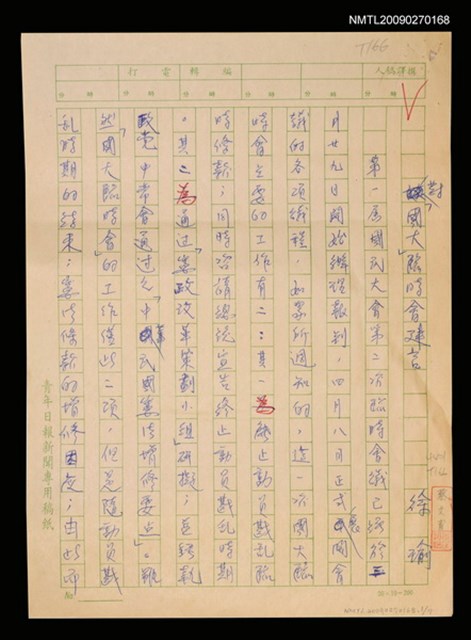 NMTL20090270168
T166
人稿譯撰
輯編
電打
時 分
時 分
時 分
對「國大」臨時會建言
徐瑜
第一屆國民大會第二次臨時會議已經於三
月廿九日開始辦理報到,四月八日正式集會
議的各項議程,如眾所週知的,這一次國大臨
時會主要的工作有二:其一為廢止動員戡亂臨
時條款;同時咨請總統宣告終止動員戡亂時期
。其二為通過「憲政改革策劃小組」研擬,且經執
政黨中常會通過之「中華民國憲法增修要點」。雖
然「國大臨時會」的工作僅此二項,但是隨動員戡
亂時期的結束;憲法條款的增修因應;由此而
青年日報新聞專用稿紙